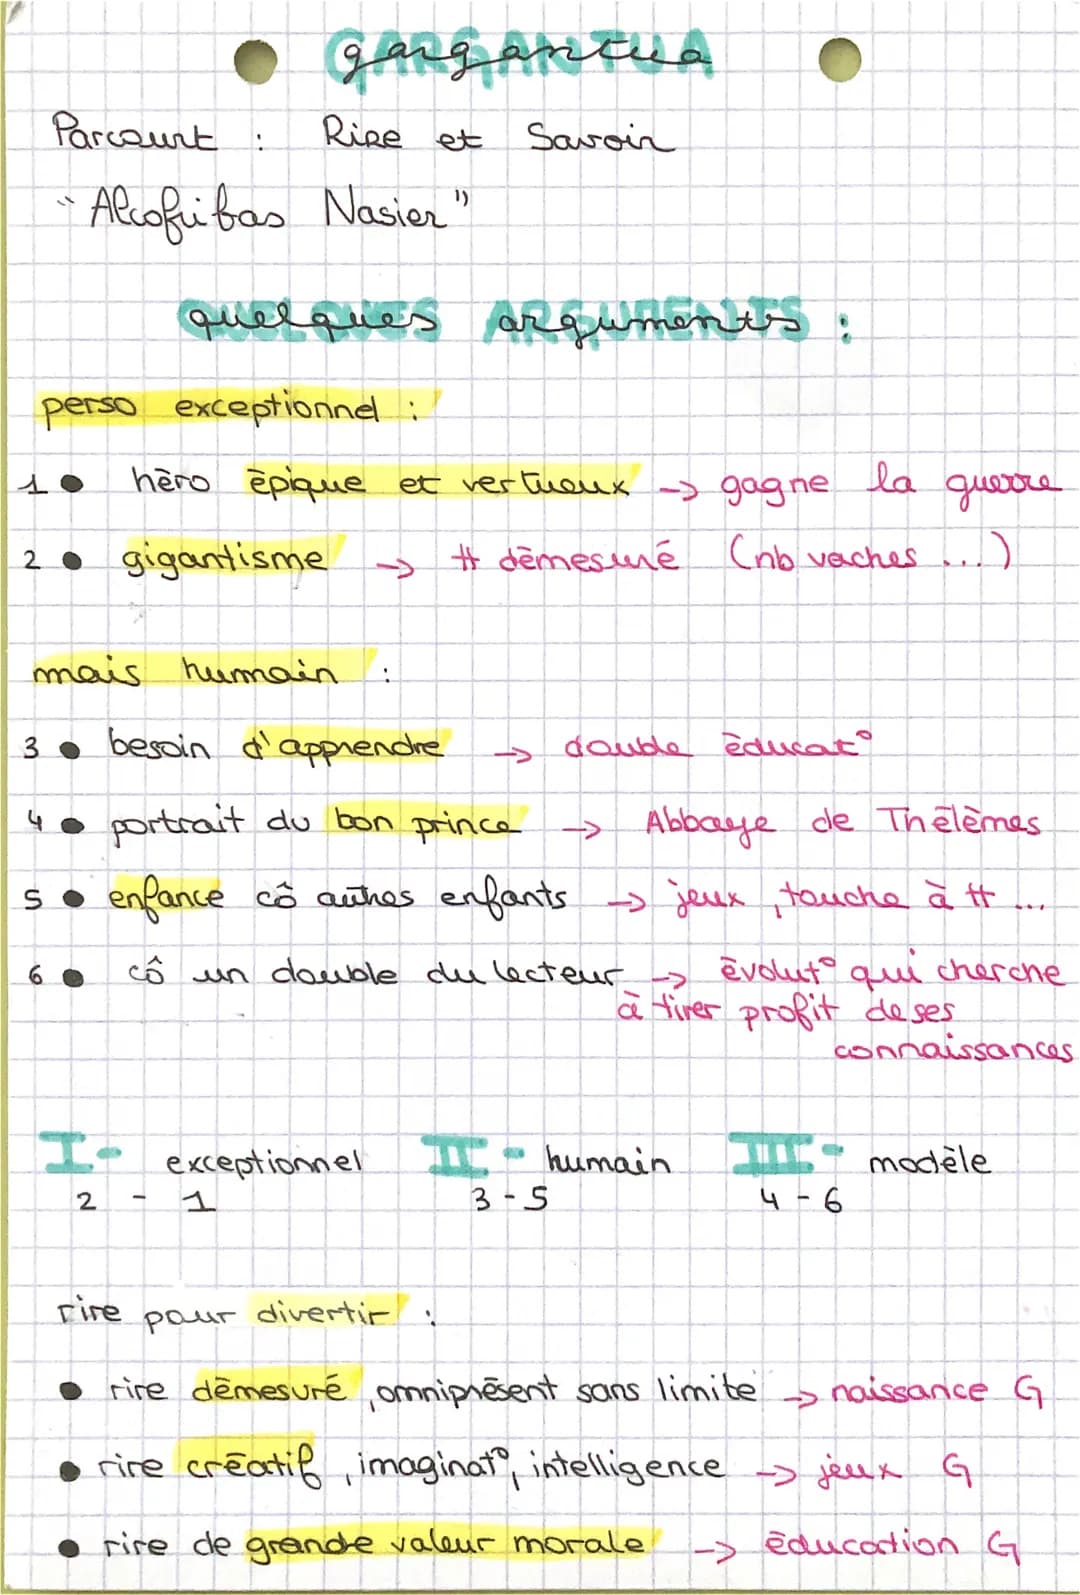 gargantua
Parcourt : Rire et Savoir
"Alcofribas Nasier"
quelques arguments :
perso exceptionnel :
1 • héro épique et vertueux → gagne la guerre
2 • gigantisme → # démesuré (nb vaches ...)
mais humain :
3 • besoin d'apprendre → double éducat°
4 • portrait du bon prince → Abbaye de Thélèmes
5 • enfance cô autres enfants → jeux, touche à tt ...
6 • cô un double du lecteur → évolut° qui cherche
à tirer profit de ses
connaissances
I - exceptionnel II - humain III - modèle
2 - 1 3 - 5 4 - 6
rire pour divertir :
• rire démesuré, omniprésent sans limite → naissance G
• rire créatif, imaginat°, intelligence → jeux G
• rire de grande valeur morale → éducation G